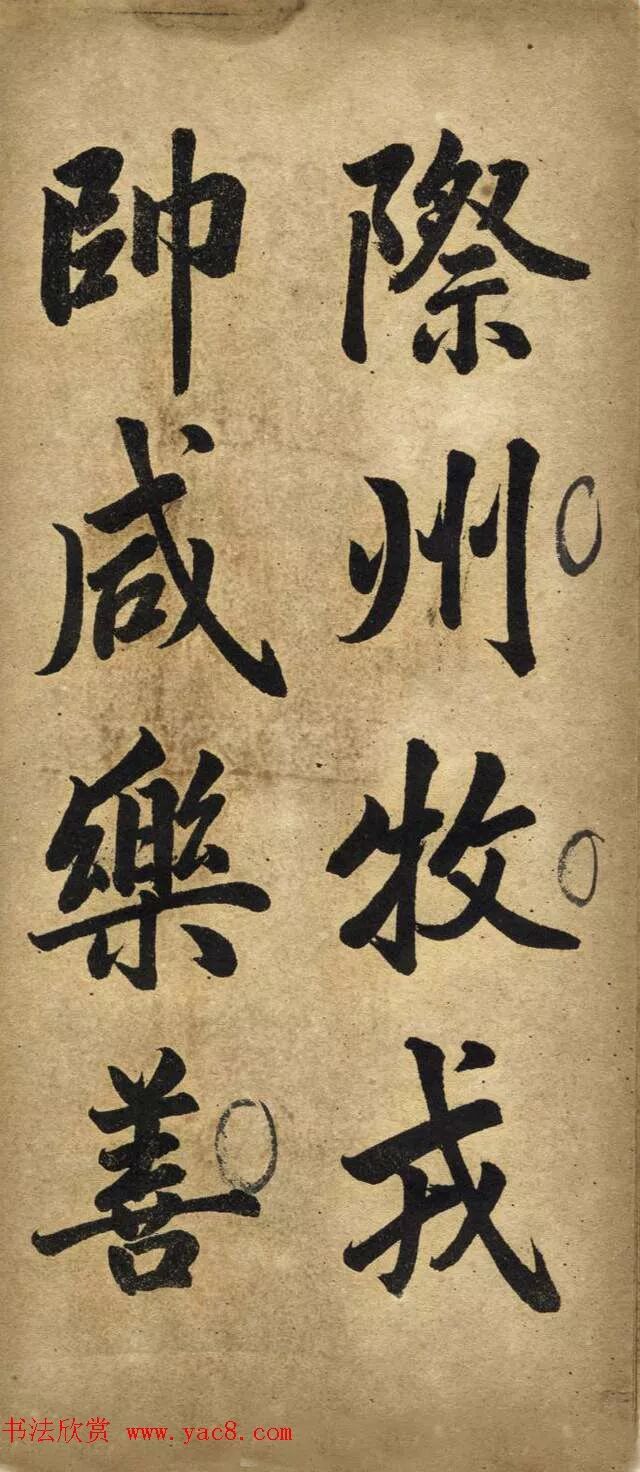 際州牧戎
帥咸樂善
书法欣赏 www.yac8.com